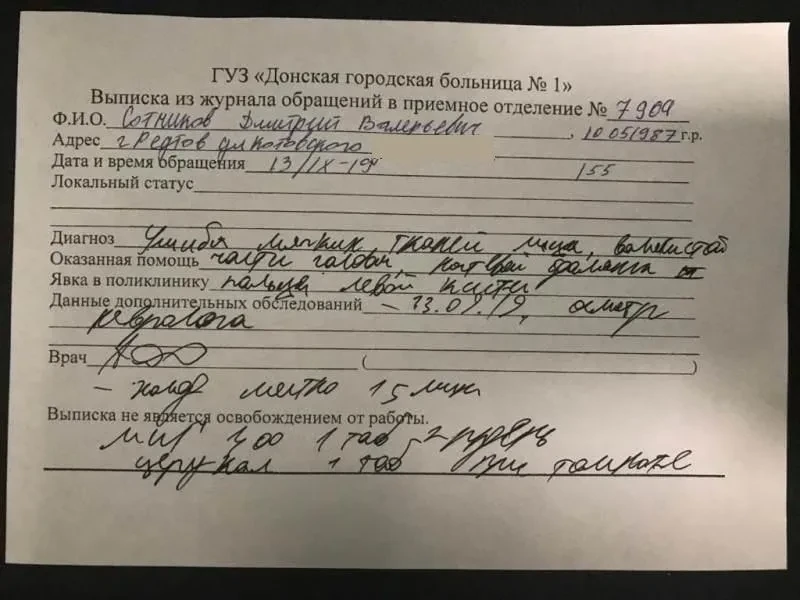 ГУЗ «Донская городская больница № 1»
Выписка из журнала обращений в приемное отделение № 7909
Ф.И.О. Сотников Дмитрий Валерьевич, 10 05 1987 г.р.
Адрес г Реутов ул Котовского
Дата и время обращения 13/IX-19г 155
Локальный статус
Диагноз Ушибы мягких тканей лица, волосистой
Оказанная помощь части головы, ногтевой фаланги
Явка в поликлинику пальца левой кисти
Данные дополнительных обследований – 13.09.19, осмотр
невролога
Врач ( )
– холод местно 15 мин
Выписка не является освобождением от работы.
1 таб 2 р/день
церукал 1 таб при тошноте